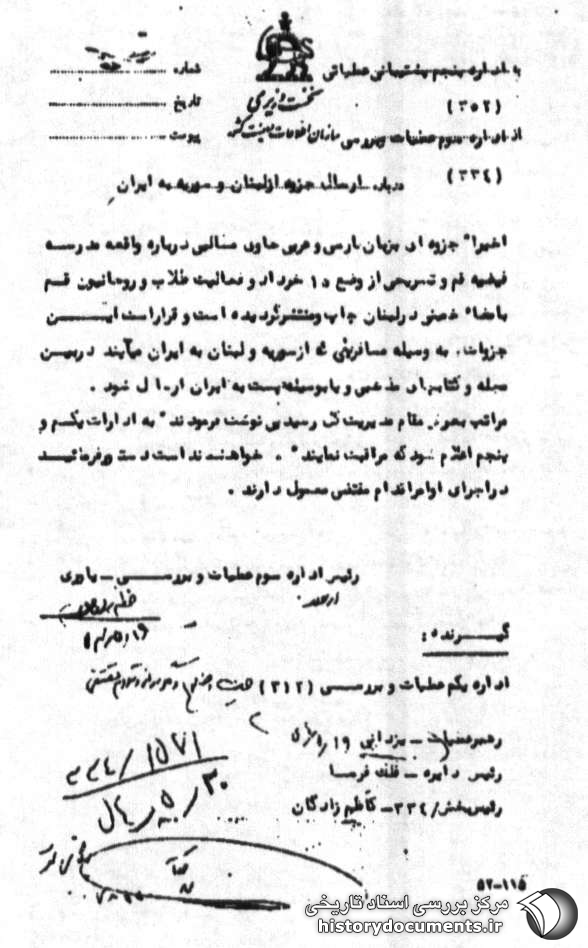 به اداره پنجم پشتیبانی عملیاتی
شماره
(۳۵۲)
نخست وزیری
تاریخ
از اداره سوم عملیات و بررسی
سازمان اطلاعات و امنیت کشور
پیوست
(۳۳۴)
درباره ارسال جزوه از لبنان و سوریه به ایران
اخیرا" جزوه ای بزبان پارسی و عربی حاوی مطالبی درباره واقعه مدرسه
فیضیه قم و تشریحی از وضع ۱۵ خرداد و فعالیت طلاب و روحانیون قم
بامضاء خمینی در لبنان چاپ و منتشر گردیده است و قرار است ایـــن
جزوات به وسیله مسافرینی که از سوریه و لبنان به ایران میآیند در بین
مجله و کتابهای مذهبی و یا بوسیله پست به ایران ارسال شود .
مراتب بعرض مقام مدیریت کل رسید پی نوشت فرمودند " به ادارات یکم و
پنجم اعلام شود که مراقبت نمایند " . خواهشمند است دستور فرمائیـــد
در اجرای اوامر اقدام مقتضی معمول دارند .
رئیس اداره سوم عملیات و بررســـی ـ یاوری
گیـــرنده :
اداره یکم عملیات و بررســـی (۳۱۲) جهت
رهبر عملیات ـ یزدانی
رئیس دایره ـ فلک فرسا
۳۳۴/۱۵۷۱
رئیس بخش/۳۳۴ ـ کاظم زادگان
۵۲-۱۱۵
مرکز بررسی اسناد تاریخی
historydocuments.ir